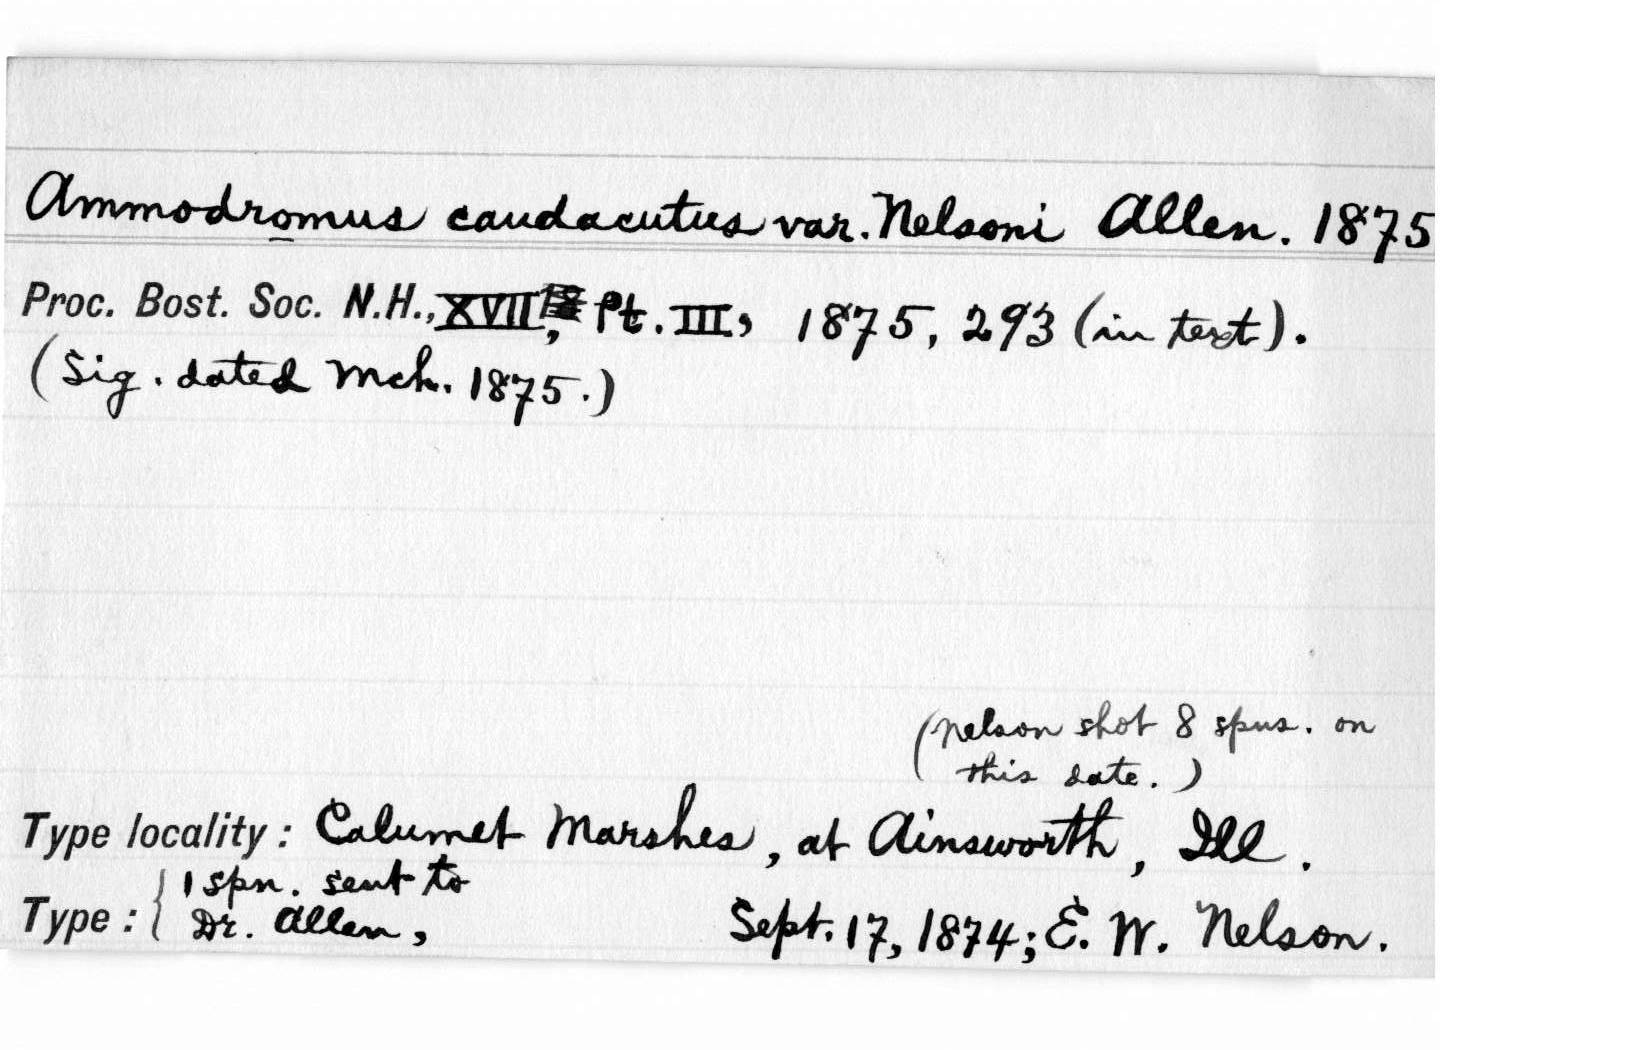 Ammodromus caudacutus var. Nelsoni Allen. 1875
Proc. Bost. Soc. N.H., XVII, Pt. III, 1875, 293 (in text).
(Sig. dated Mch. 1875.)
(Nelson shot 8 spns. on
this date.)
Type locality: Calumet Marshes, at Ainsworth, Ill.
1 spn. sent to
Type: { Dr. Allen, Sept. 17, 1874; E. W. Nelson.